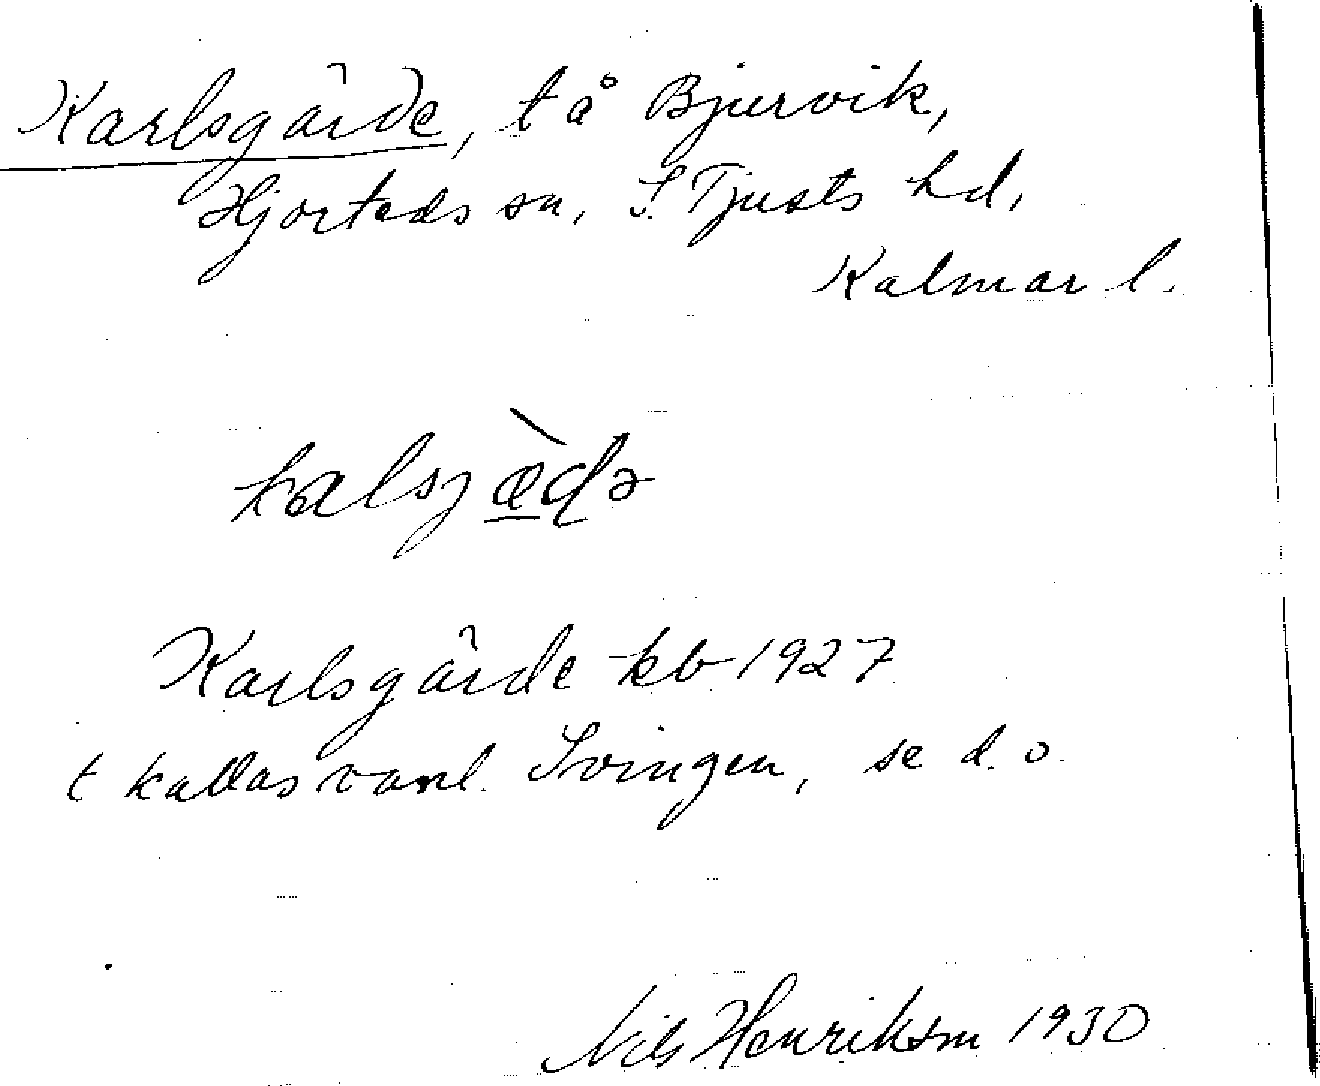 Karlsgärde, t å Bjurvik,
Hjorteds sn, S. Tjusts hd,
Kalmar l.
kalsjæ̀ḍə
Karlsgärde kb 1927
t kallas vanl. Svingen, se d. o.
Nils Henriksson 1930